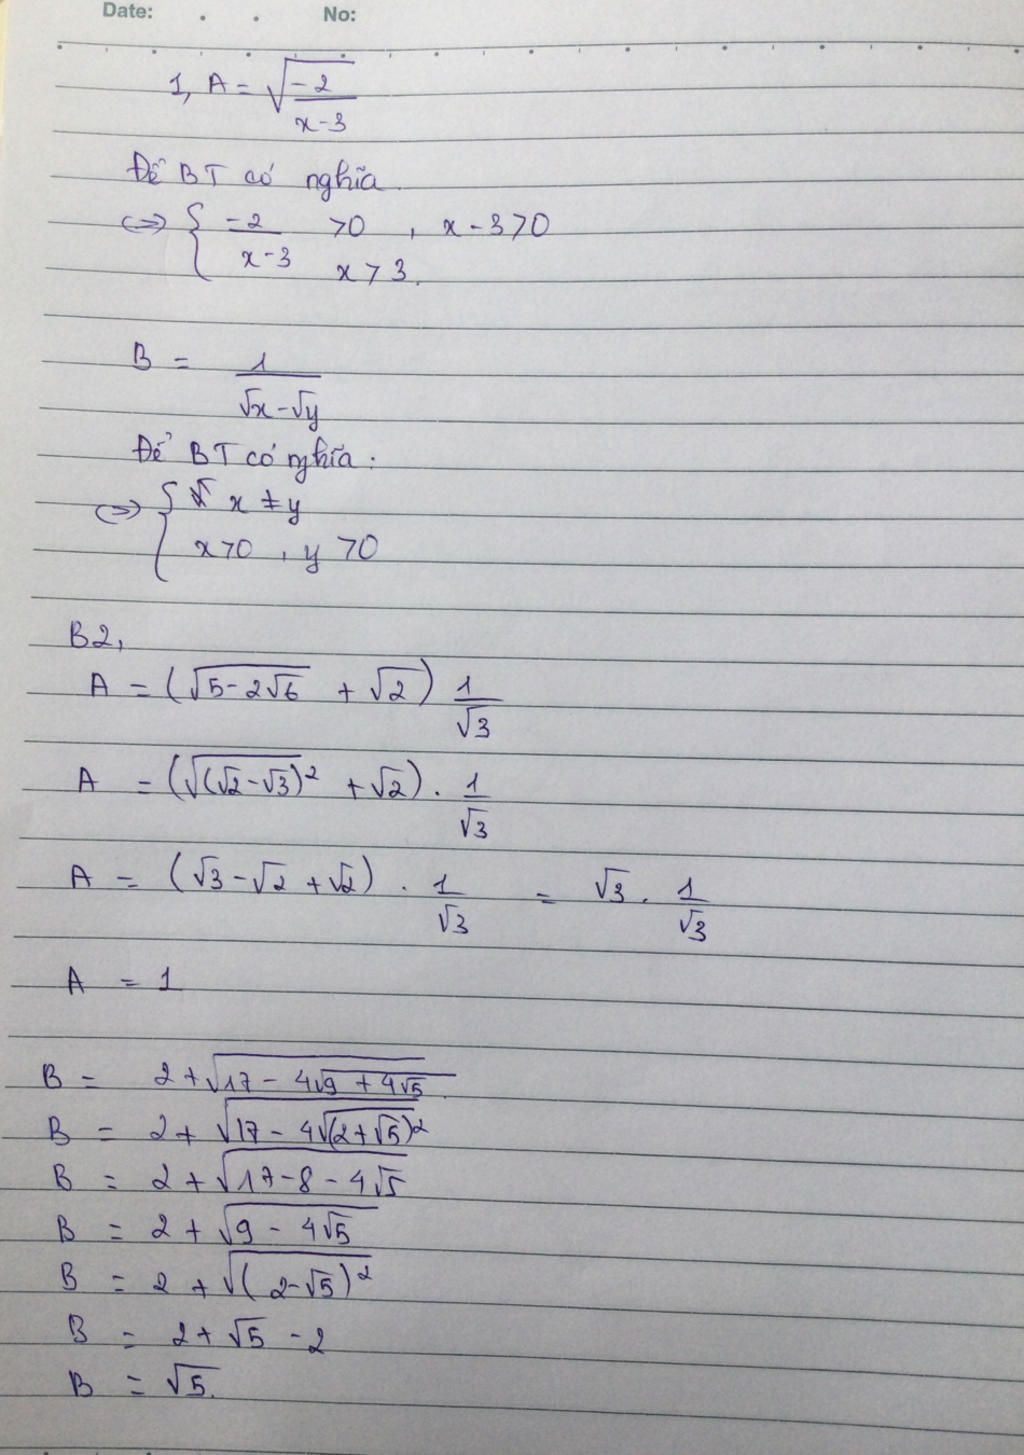 Date: No:
1, A = √(-2/(x-3))
Để BT có nghĩa.
<=> { -2/(x-3) >0 , x-3>0
x>3.
B = 1/(√x-√y)
Để BT có nghĩa:
<=> { x ≠ y
x>0 , y>0
B2,
A = (√(5-2√6) + √2) 1/√3
A = (√((√2-√3)²) + √2) . 1/√3
A = (√3-√2+√2) . 1/√3 = √3 . 1/√3
A = 1
B = 2+√(17-4√(9+4√5))
B = 2+√(17-4√((2+√5)²))
B = 2+√(17-8-4√5)
B = 2+√(9-4√5)
B = 2+√((2-√5)²)
B = 2+√5-2
B = √5.